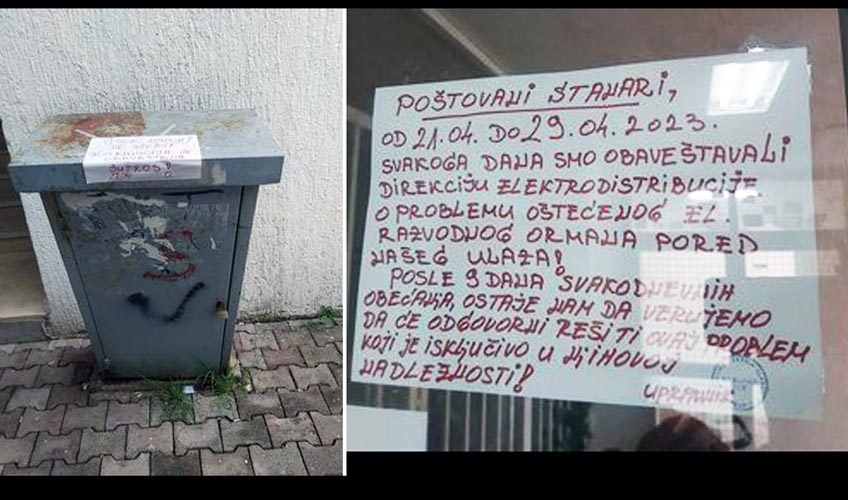 JUTROS!
POŠTOVANI STANARI,
OD 21.04. DO 29.04.2023.
SVAKOGA DANA SMO OBAVEŠTAVALI
DIREKCIJU ELEKTRODISTRIBUCIJE
O PROBLEMU OŠTEĆENOG EL.
RAZVODNOG ORMANA PORED
NAŠEG ULAZA!
POSLE 9 DANA SVAKODNEVNIH
OBEĆANJA, OSTAJE NAM DA VERUJEMO
DA ĆE ODGOVORNI REŠITI OVAJ PROBLEM
KOJI JE ISKLJUČIVO U NJIHOVOJ
NADLEŽNOSTI!
UPRAVNIK